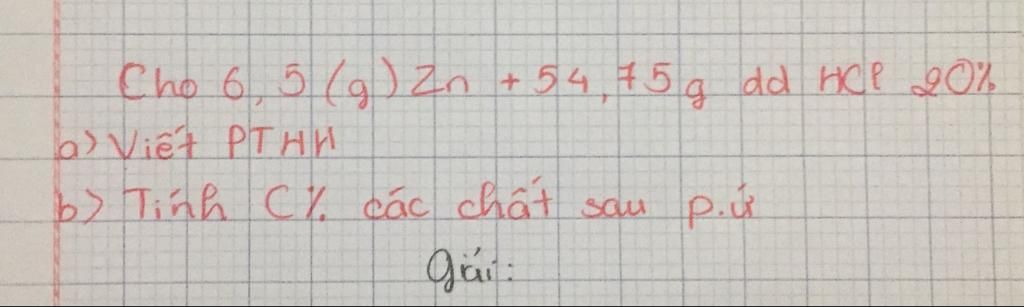 Cho 6,5 (g) Zn + 54,75g dd HCl 20%
a) Viết PTHH
b) Tính C% các chất sau p.ứ
Giải: